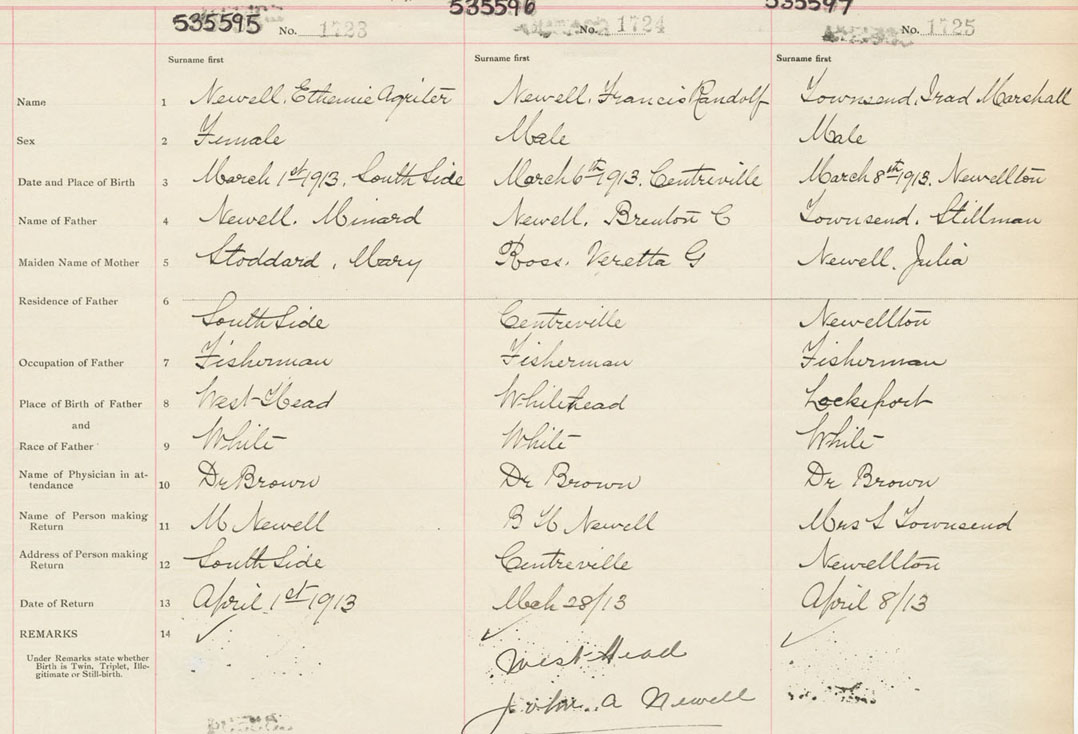 535595 No. 1723 535596 No. 1724 535597 No. 1725
Surname first Surname first Surname first
Name 1 Newell, Ethemie Agriter Newell, Francis Randolf Townsend, Irad Marshall
Sex 2 Female Male Male
Date and Place of Birth 3 March 1st 1913. South Side March 6th 1913. Centreville March 8th 1913. Newellton
Name of Father 4 Newell. Minard Newell. Brenton C Townsend. Stillman
Maiden Name of Mother 5 Stoddard, Mary Ross. Veretta G Newell. Julia
Residence of Father 6
South Side Centreville Newellton
Occupation of Father 7 Fisherman Fisherman Fisherman
Place of Birth of Father 8 West-Head Whitehead Lockeport
and
Race of Father 9 White White White
Name of Physician in at-
tendance 10 Dr Brown Dr Brown Dr Brown
Name of Person making
Return 11 M Newell B H Newell Mrs S Townsend
Address of Person making
Return 12 South Side Centreville Newellton
Date of Return 13 April 1st 1913 Mch 28/13 April 8/13
REMARKS 14
Under Remarks state whether
Birth is Twin, Triplet, Ille-
gitimate or Still-birth.
West Head
John. A Newell